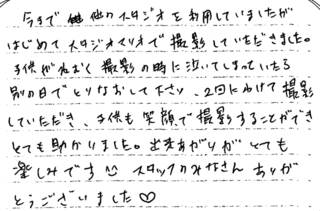 今まで他のスタジオを利用していましたが
はじめてスタジオマリオで撮影していただきました。
子供がねむく撮影の時に泣いてしまっていたら
別の日でとりなおして下さい、2回にわけて撮影
していただき、子供も笑顔で撮影することができ
とても助かりました。出来あがりがとても
楽しみです スタッフのみなさんありが
とうございました♡